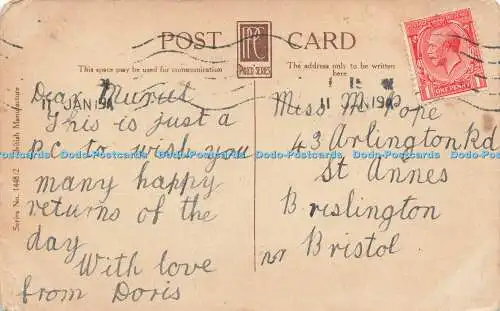 POST CARD
PC
PHOTO SERIES
This space may be used for communication
The address only to be written
here
ONE PENNY
11 JAN 19
11 JAN 19
Dear
This is just a
p.c. to wish you
many happy
returns of the
day
With love
from Doris
Miss M. Pope
43 Arlington Rd
St Annes
Brislington
nr Bristol
Series No. 1448/2
British Manufacture
Dodo-Postcards Dodo-Postcards Dodo-Postcards Dodo-Postcards Dodo-Postcards